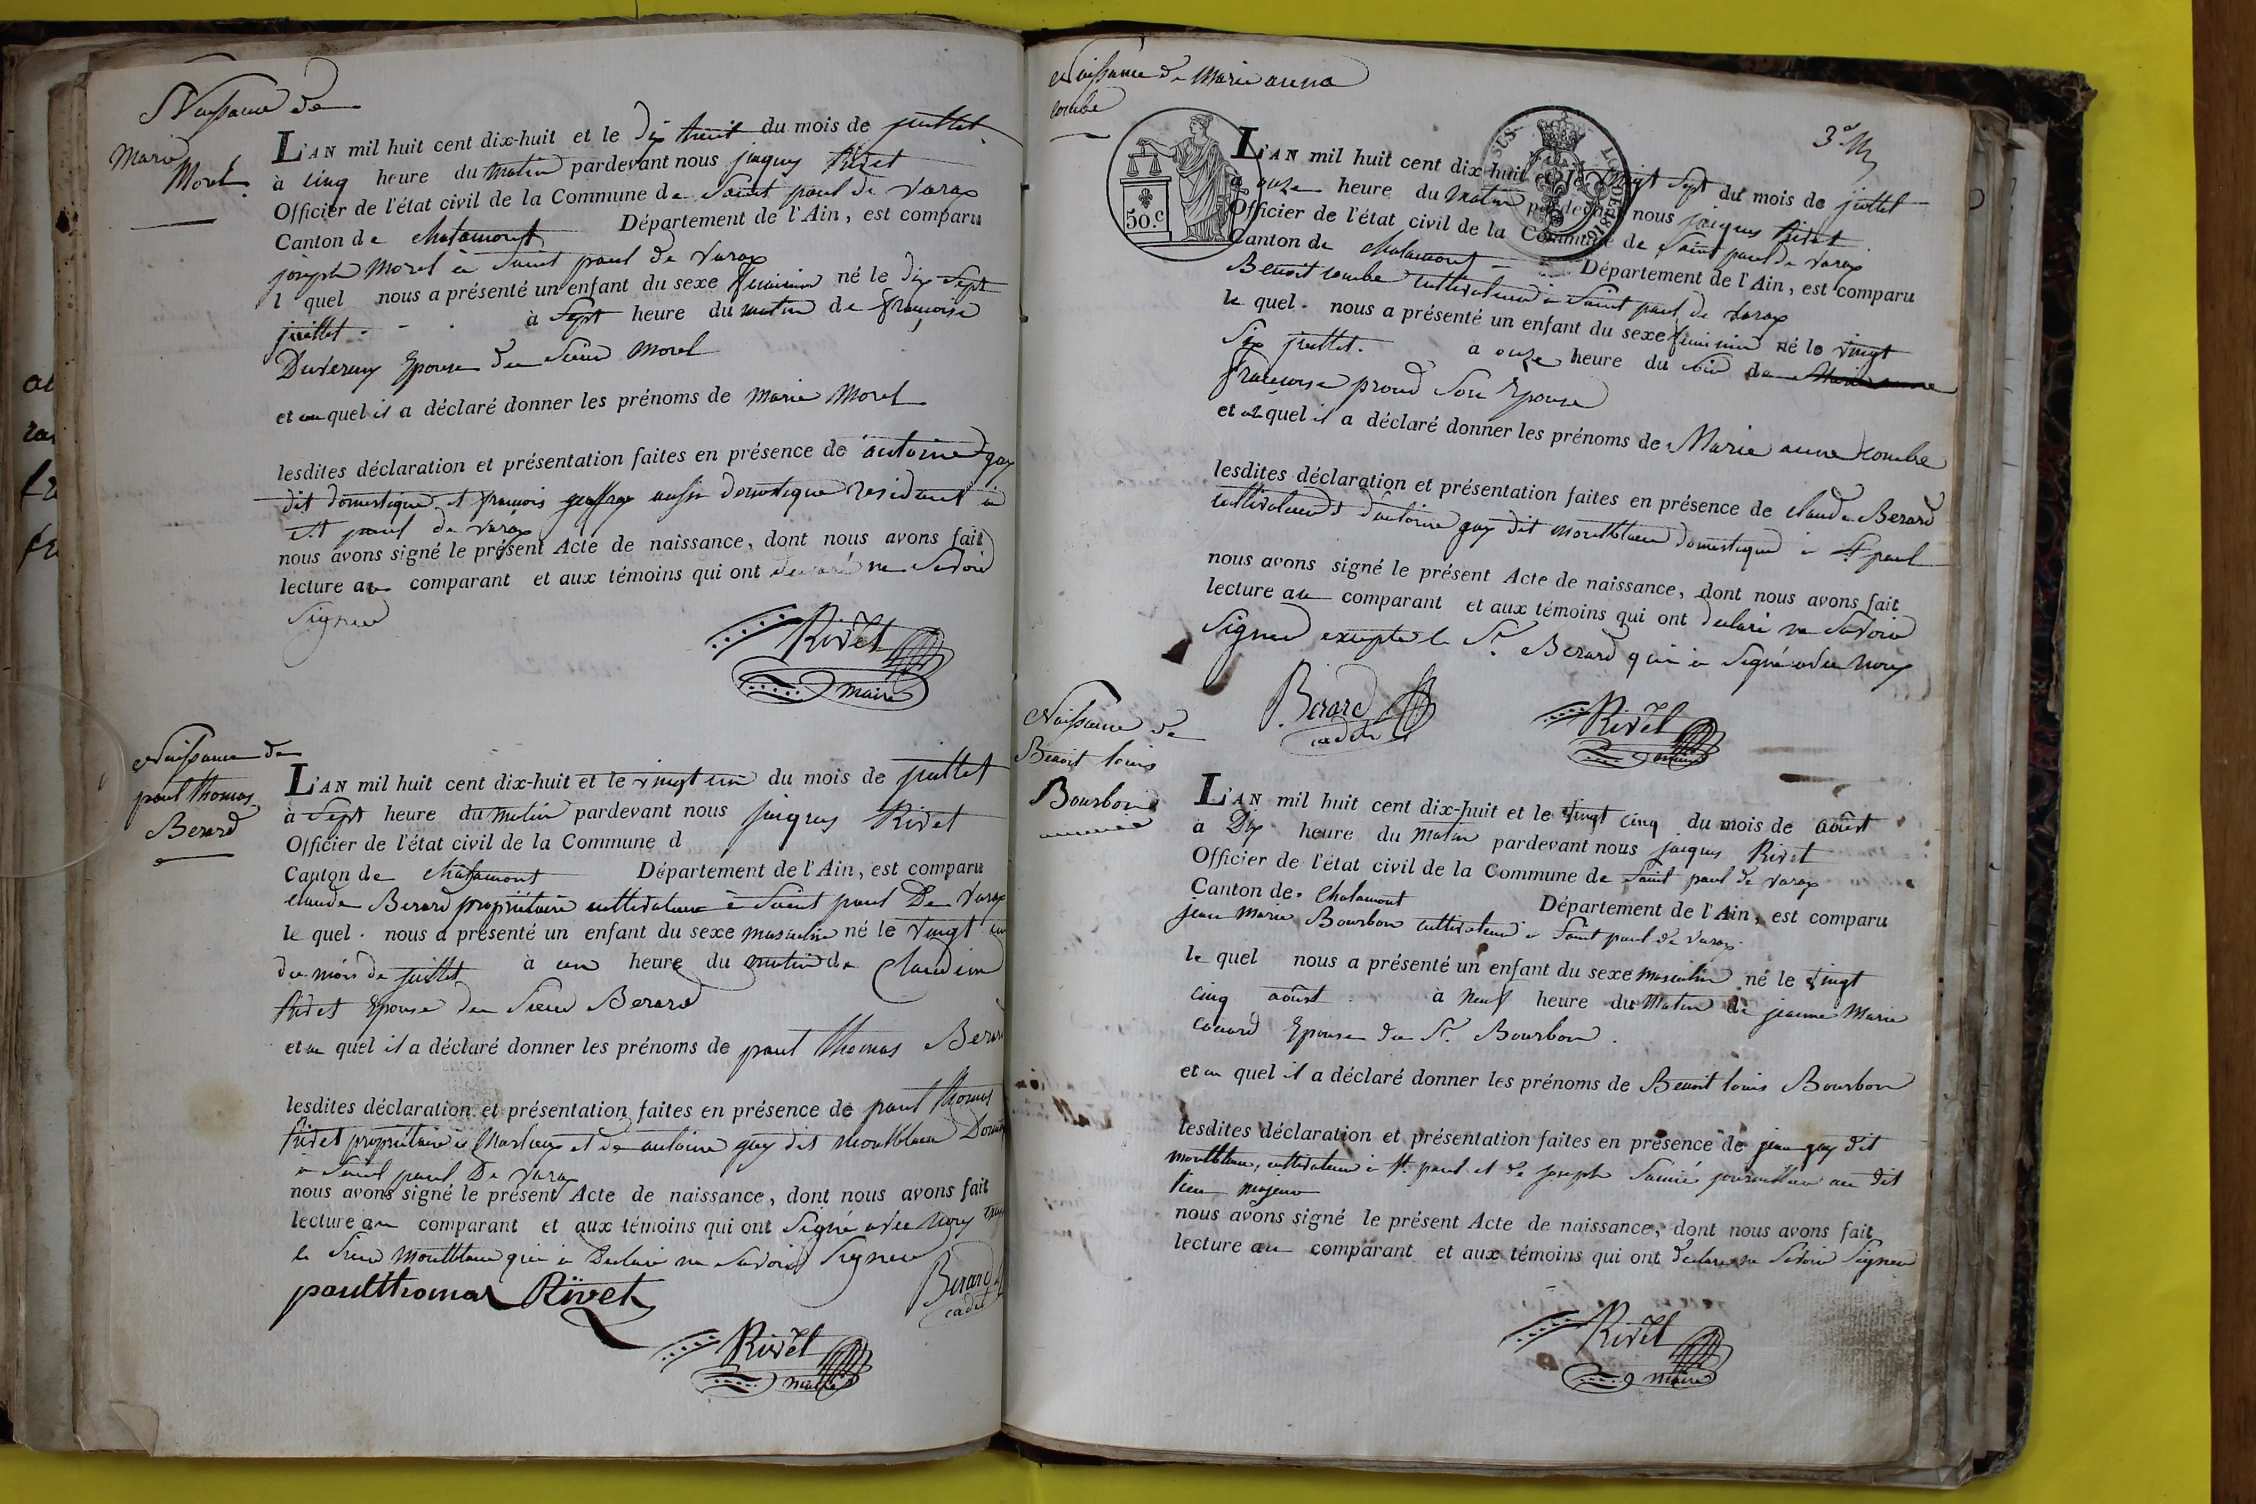 Naissance de
Marie
Morel
L'AN mil huit cent dix-huit et le dix huit du mois de juillet
à cinq heure du matin pardevant nous jacques Rivet
Officier de l'état civil de la Commune de Saint paul de Varax
Canton de chalamont Département de l'Ain, est comparu
joseph Morel à Saint paul de Varax
l quel nous a présenté un enfant du sexe feminin né le dix Sept
juillet à Sept heure du matin de françoise
Epouse du Sieur Morel
et au quel il a déclaré donner les prénoms de Marie Morel
lesdites déclaration et présentation faites en présence de antoine gay
dit domestique et francois geoffray aussi domestique residant à
St paul de varax
nous avons signé le présent Acte de naissance, dont nous avons fait
lecture au comparant et aux témoins qui ont declaré ne Savoir
Signer
Rivet
maire
Naissance de
paul thomas
Berard
L'AN mil huit cent dix-huit et le vingt un du mois de juillet
à Sept heure du matin pardevant nous jacques Rivet
Officier de l'état civil de la Commune d
Canton de chalamont Département de l'Ain, est comparu
claude Berard propriétaire cultivateur à Saint paul De Varax
le quel nous a présenté un enfant du sexe masculin né le vingt un
du mois de juillet à un heure du matin de Claudine
Rivet Epouse du Sieur Berard
et au quel il a déclaré donner les prénoms de paul thomas Berard
lesdites déclaration et présentation faites en présence de paul thomas
Rivet propriétaire à Marlieux et de antoine gay dit montblanc
à Saint paul De Varax
nous avons signé le présent Acte de naissance, dont nous avons fait
lecture au comparant et aux témoins qui ont Signé avec nous
le Sieur Montblanc qui à Declaré ne Savoir Signer
paul thomas Rivet
Berard
cadet
Rivet
maire
Naissance de Marie anne
combe
50.c
3e
L'AN mil huit cent dix-huit et le vingt Sept du mois de juillet
à onze heure du Matin pardevant nous jacques Rivet
Officier de l'état civil de la Commune de Saint paul de Varax
Canton de chalamont Département de l'Ain, est comparu
Benoit combe cultivateur à Saint paul de varax
le quel nous a présenté un enfant du sexe feminin né le vingt
Six juillet. à onze heure du soir de
françoise proud Son Epouse
et au quel il a déclaré donner les prénoms de Marie anne combe
lesdites déclaration et présentation faites en présence de claude Berard
cultivateur et d'antoine gay dit montblanc domestique à St paul
nous avons signé le présent Acte de naissance, dont nous avons fait
lecture au comparant et aux témoins qui ont declaré ne Savoir
Signer excepté le Sr. Berard qui à Signé avec nous
Berard
cadet
Rivet
maire
Naissance de
Benoit louis
Bourbon
L'AN mil huit cent dix-huit et le vingt cinq du mois de août
à Dix heure du matin pardevant nous jacques Rivet
Officier de l'état civil de la Commune de Saint paul de Varax
Canton de Chalamont Département de l'Ain, est comparu
jean Marie Bourbon cultivateur à Saint paul de Varax
le quel nous a présenté un enfant du sexe masculin né le vingt
cinq août à Neuf heure du Matin de jeanne Marie
Epouse du Sr. Bourbon
et au quel il a déclaré donner les prénoms de Benoit louis Bourbon
lesdites déclaration et présentation faites en présence de jean gay dit
montblanc, cultivateur à St. paul et de joseph journalier au dit
lieu majeur
nous avons signé le présent Acte de naissance, dont nous avons fait
lecture au comparant et aux témoins qui ont declaré ne Savoir Signer
Rivet
maire